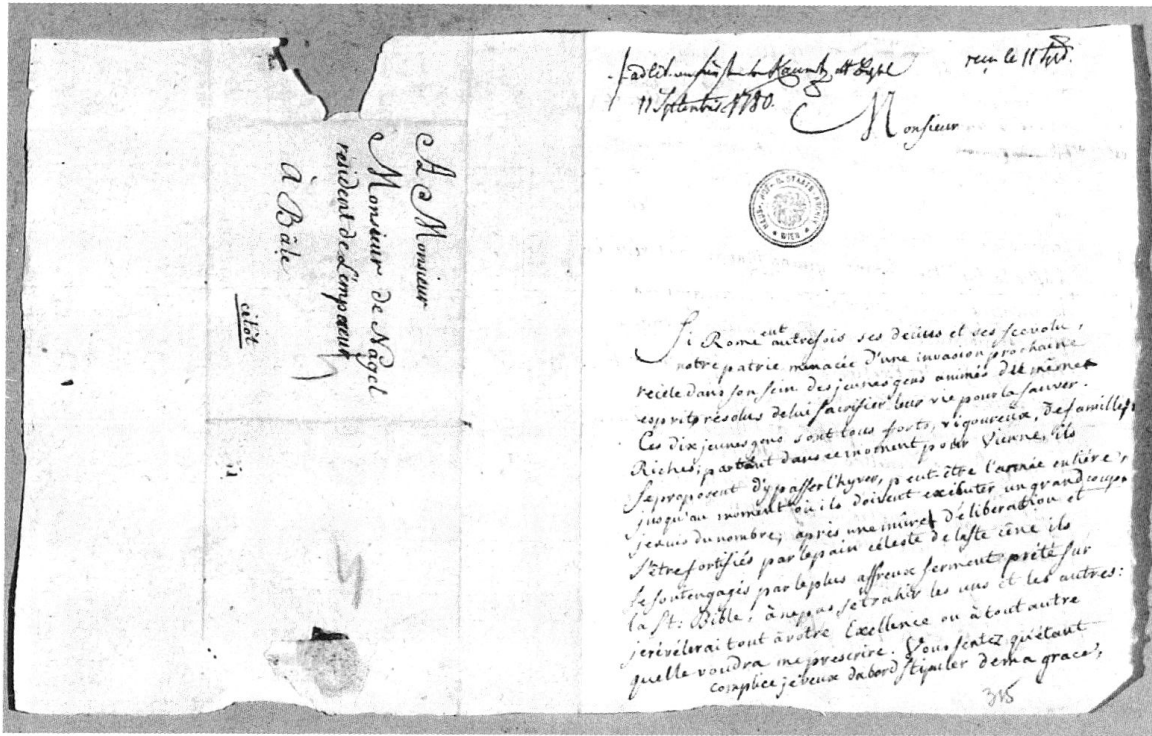 A Monsieur
Monsieur de Nagel
résident de L'empereur
à Bâle
citôt
reçu le 11
11 Septembre 1780.
Monsieur
WIEN
Si Rome eut autrefois ses decius et ses scevola,
notre patrie menacée d'une invasion prochaine
recèle dans son sein des jeunes gens animés du même
esprit et résolus de lui sacrifier leur vie pour la sauver.
Ces dix jeunes gens sont tous forts, vigoureux, de familles
Riches; partent dans ce moment pour Vienne, ils
se proposent d'y passer l'hyver, peut être l'année entière,
jusqu'au moment où ils doivent exécuter un grand coup
je suis du nombre; après une mûre déliberation et
s'être fortifiés par le pain céleste de la ste cène ils
se sont engagés par le plus affreux serment prêté sur
la St: Bible, à ne pas se trahir les uns et les autres:
je révélerai tout à votre Excellence ou à tout autre
quelle voudra me prescrire. Vous sentez qu'étant
complice je veux dabord stipuler de ma grace,
315